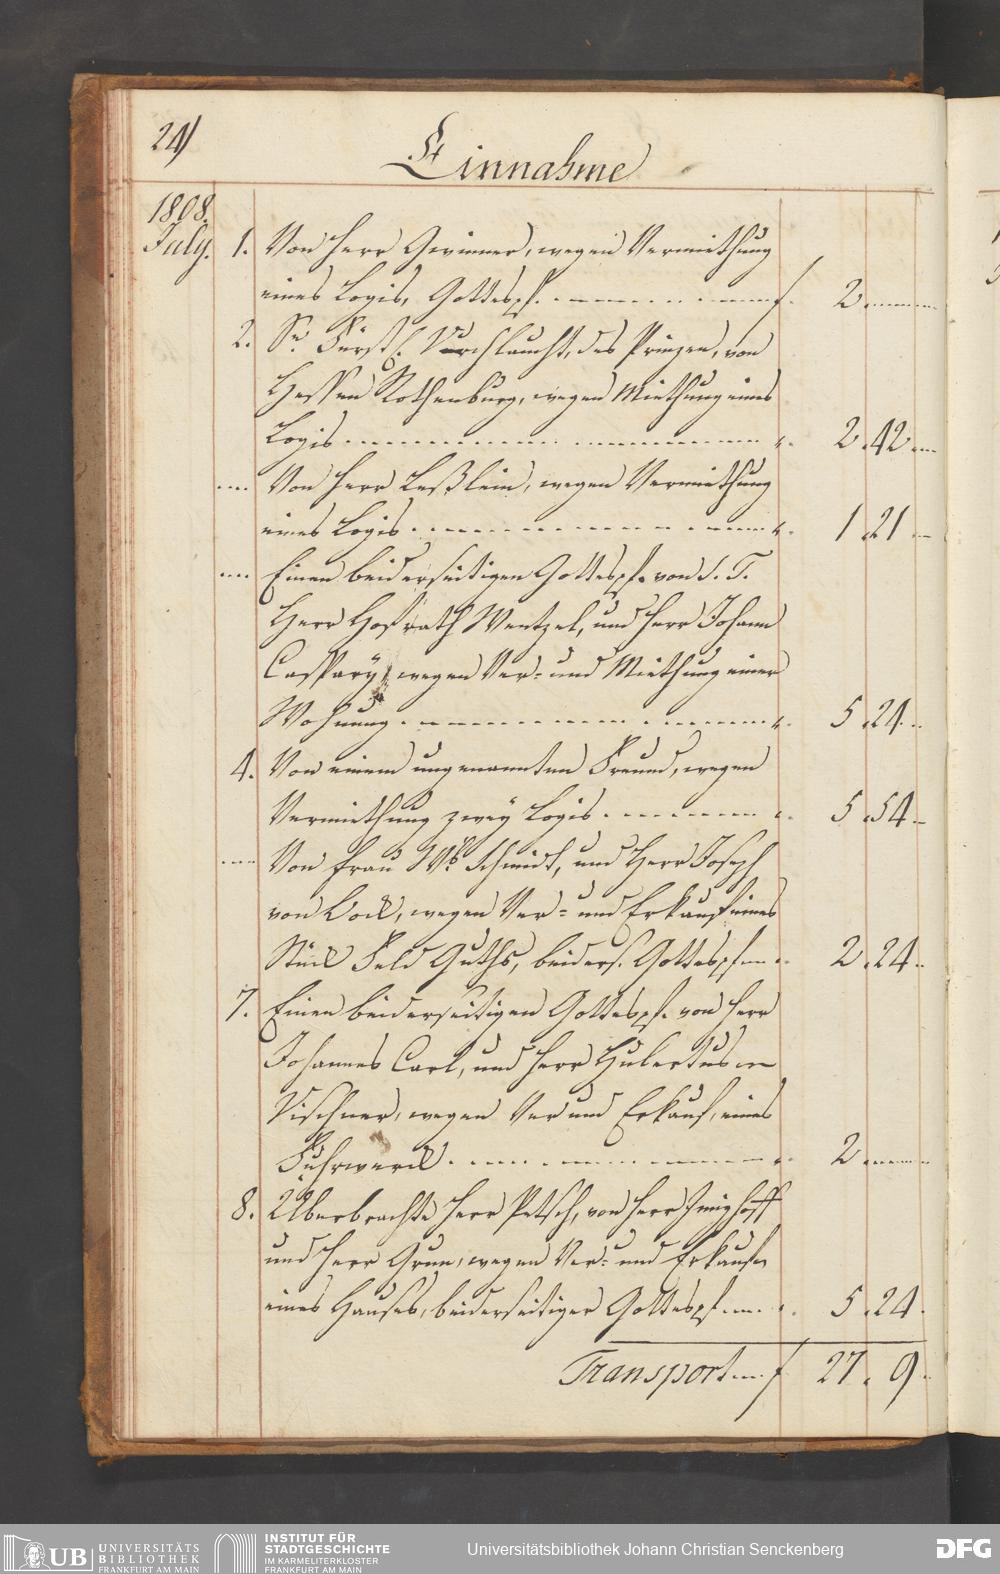 24)
Einnahme
1808.
July. 1. Von Herr Gwinner, wegen Vermiethung
eines Logis, Gottespf. f. 2
2. Sr. Fürstl. Durchlaucht, des Prinzen, von
Hessen Rothenburg, wegen Miethung eines
Logis 2. 42
Von Herr Leßlein, wegen Vermiethung
eines Logis 1. 21
Einen beiderseitigen Gottespf. von S. T.
Herr Hofrath Wentzel, und Herr Johann
Caspary, wegen Ver- und Miethung einer
Wohnung 5. 24
4. Von einem ungenannten Freund, wegen
Vermiethung zwey Logis 5. 54
Von Frau Wb. Schmidt, und Herr Joseph
von wegen Ver- und Erkauf eines
Stück Feld Guths, beiders. Gottespf. 2. 24
7. Einen beiderseitigen Gottespf. von Herr
Johannes Carl, und Herr Hubertus
Vischner, wegen Ver und Erkauf, eines
Fuhrwerck 2
8. Überbrachte Herr Petsch, von Herr
und Herr Grun, wegen Ver- und Erkaufen
eines Hauses, beiderseitiger Gottespf. 5. 24
Transport f 27. 9
UB UNIVERSITÄTS
BIBLIOTHEK
FRANKFURT AM MAIN
INSTITUT FÜR
STADTGESCHICHTE
IM KARMELITERKLOSTER
FRANKFURT AM MAIN
Universitätsbibliothek Johann Christian Senckenberg
DFG